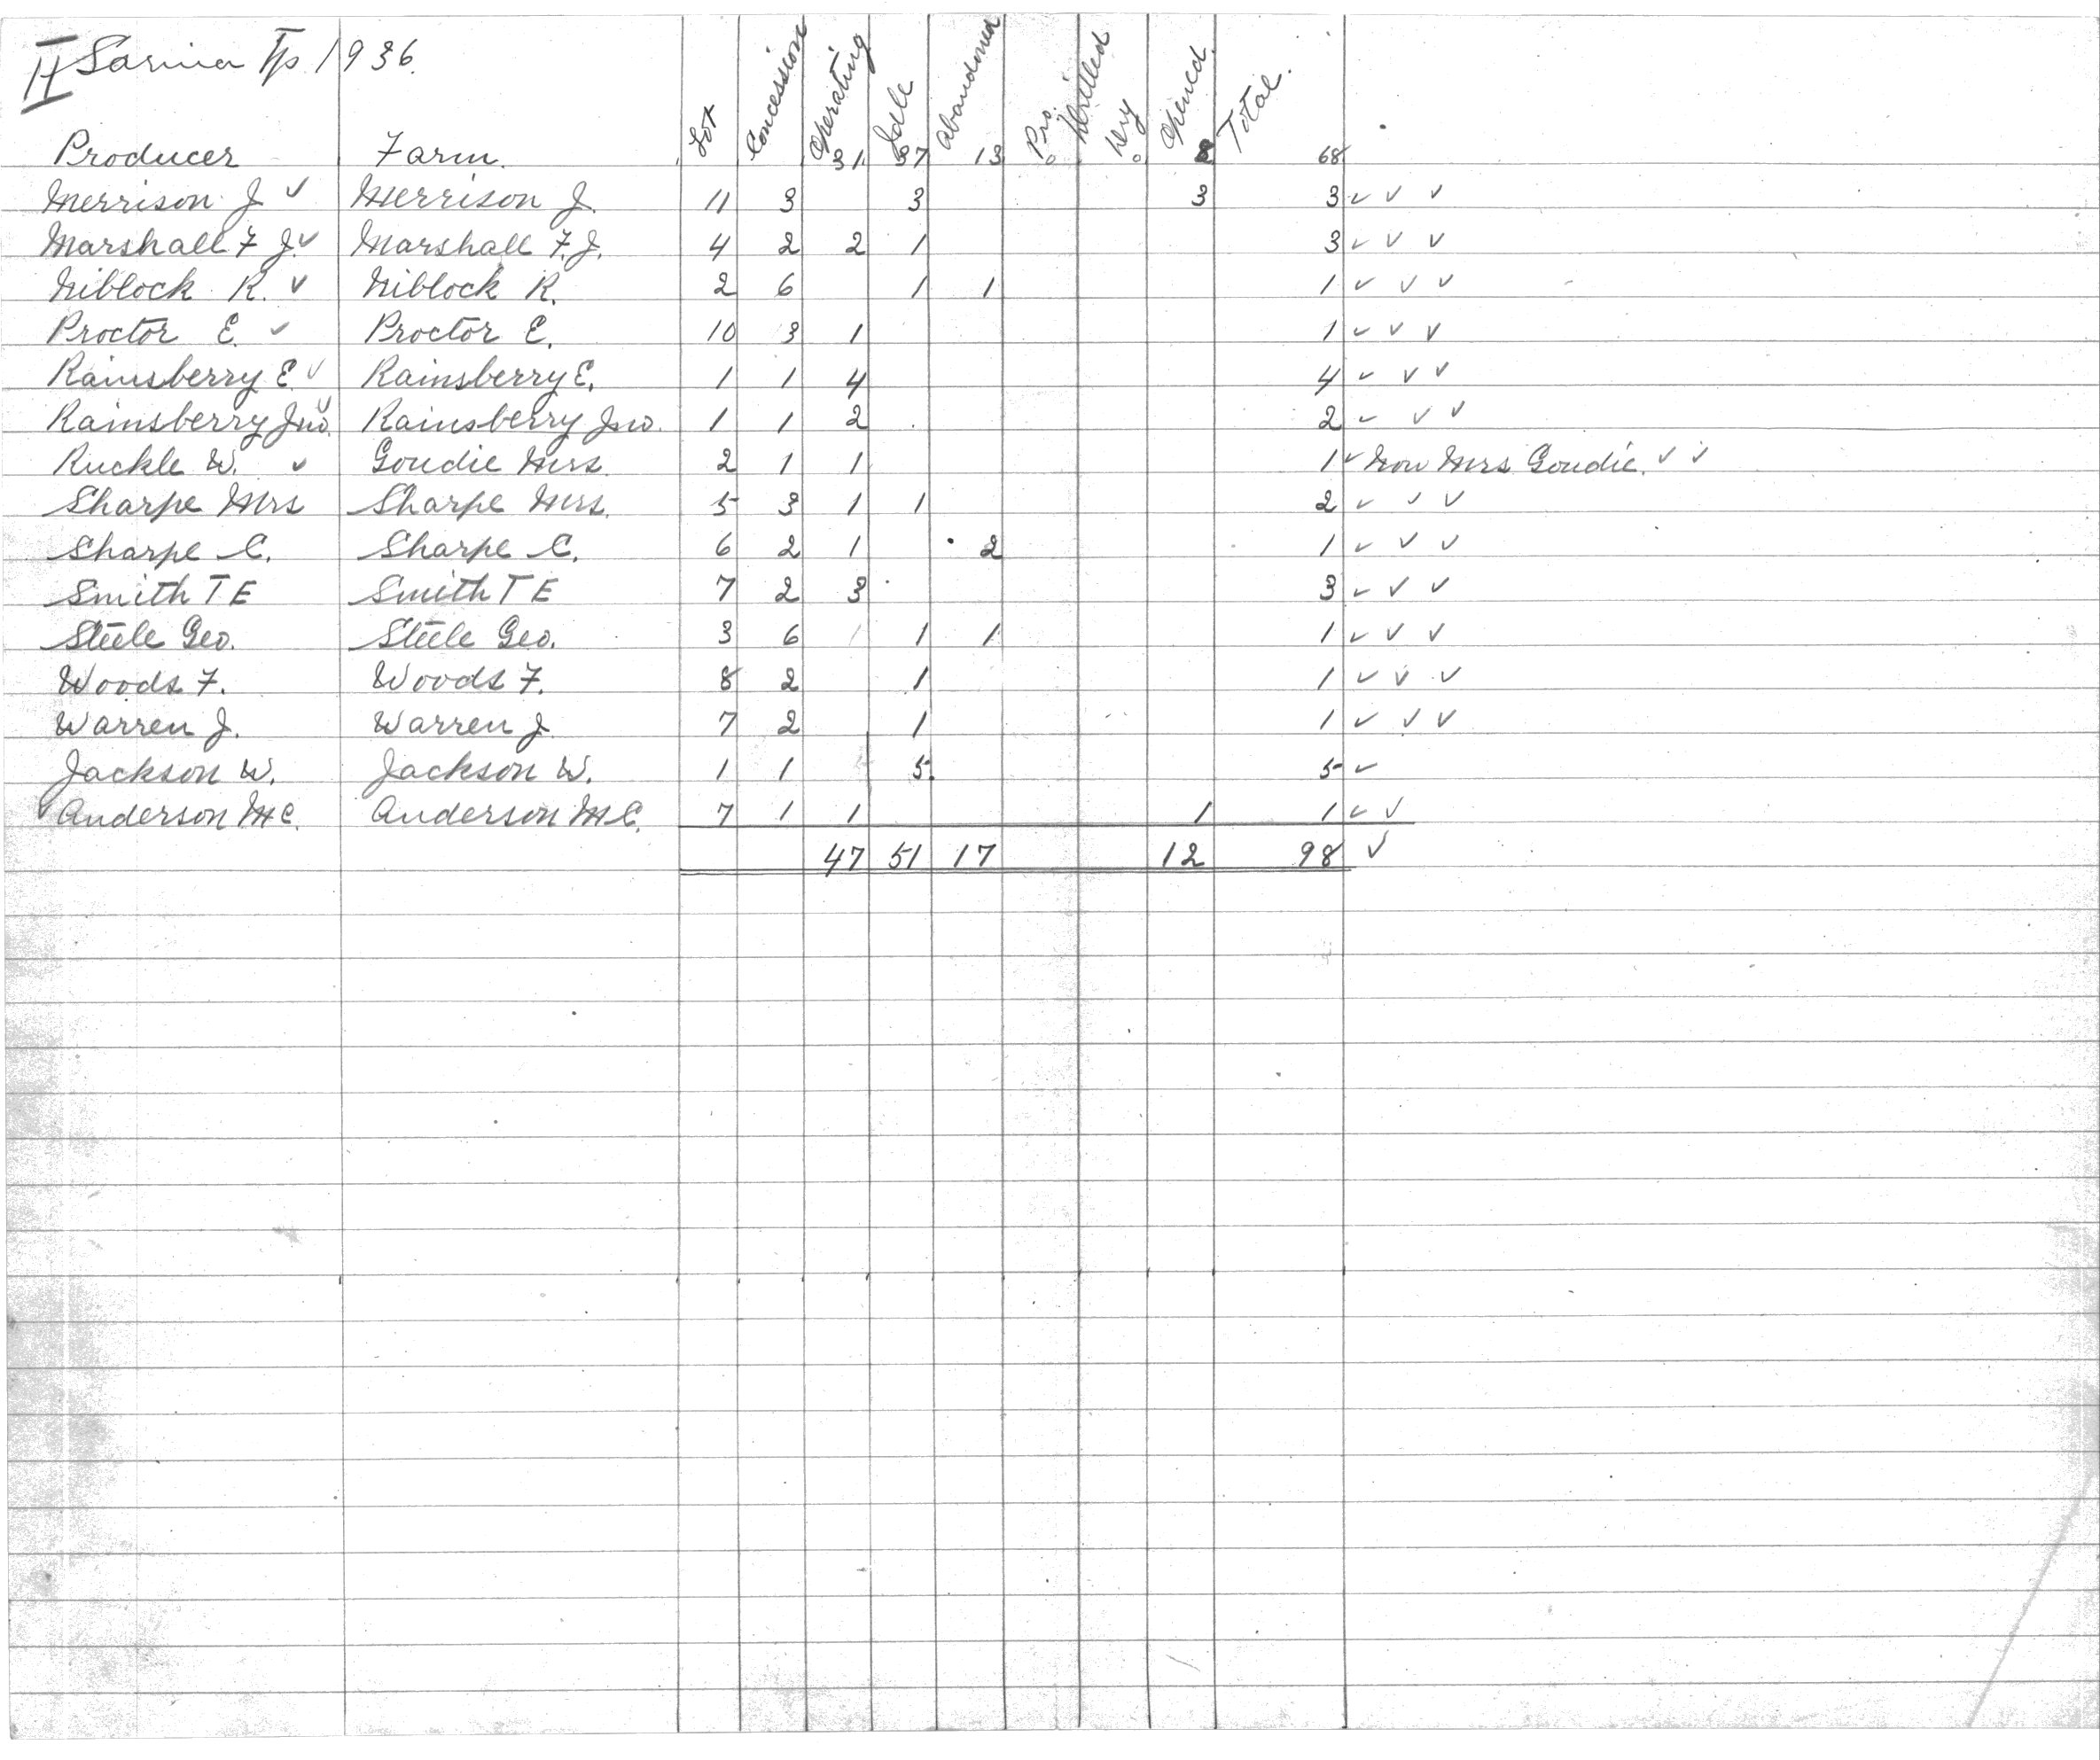 II Sarnia Tp 1936.
Producer Farm. Lot Concession Operating 31 Idle 37 Abandoned 13 Pro. 0 Drilled Dry 0 Opened 8 Total. 68
Merrison J ✓ Merrison J. 11 3 3 3 3 ✓ ✓ ✓
Marshall F J. ✓ Marshall F.J. 4 2 2 1 3 ✓ ✓ ✓
Niblock R. ✓ Niblock R. 2 6 1 1 1 ✓ ✓ ✓
Proctor E. ✓ Proctor E. 10 3 1 1 ✓ ✓ ✓
Rainsberry E. ✓ Rainsberry E. 1 1 4 4 ✓ ✓ ✓
Rainsberry Jno. ✓ Rainsberry Jno. 1 1 2 2 ✓ ✓ ✓
Ruckle W. ✓ Goudie Mrs. 2 1 1 1 ✓ Now Mrs Goudie. ✓ ✓
Sharpe Mrs Sharpe Mrs. 5 3 1 1 2 ✓ ✓ ✓
Sharpe C. Sharpe C. 6 2 1 2 1 ✓ ✓ ✓
Smith T E Smith T E 7 2 3 3 ✓ ✓ ✓
Steele Geo. Steele Geo. 3 6 1 1 1 ✓ ✓ ✓
Woods F. Woods F. 8 2 1 1 ✓ ✓ ✓
Warren J. Warren J. 7 2 1 1 ✓ ✓ ✓
Jackson W. Jackson W. 1 1 5 5 ✓
✓ Anderson M C. Anderson M C. 7 1 1 1 1 ✓ ✓
47 51 17 12 98 ✓